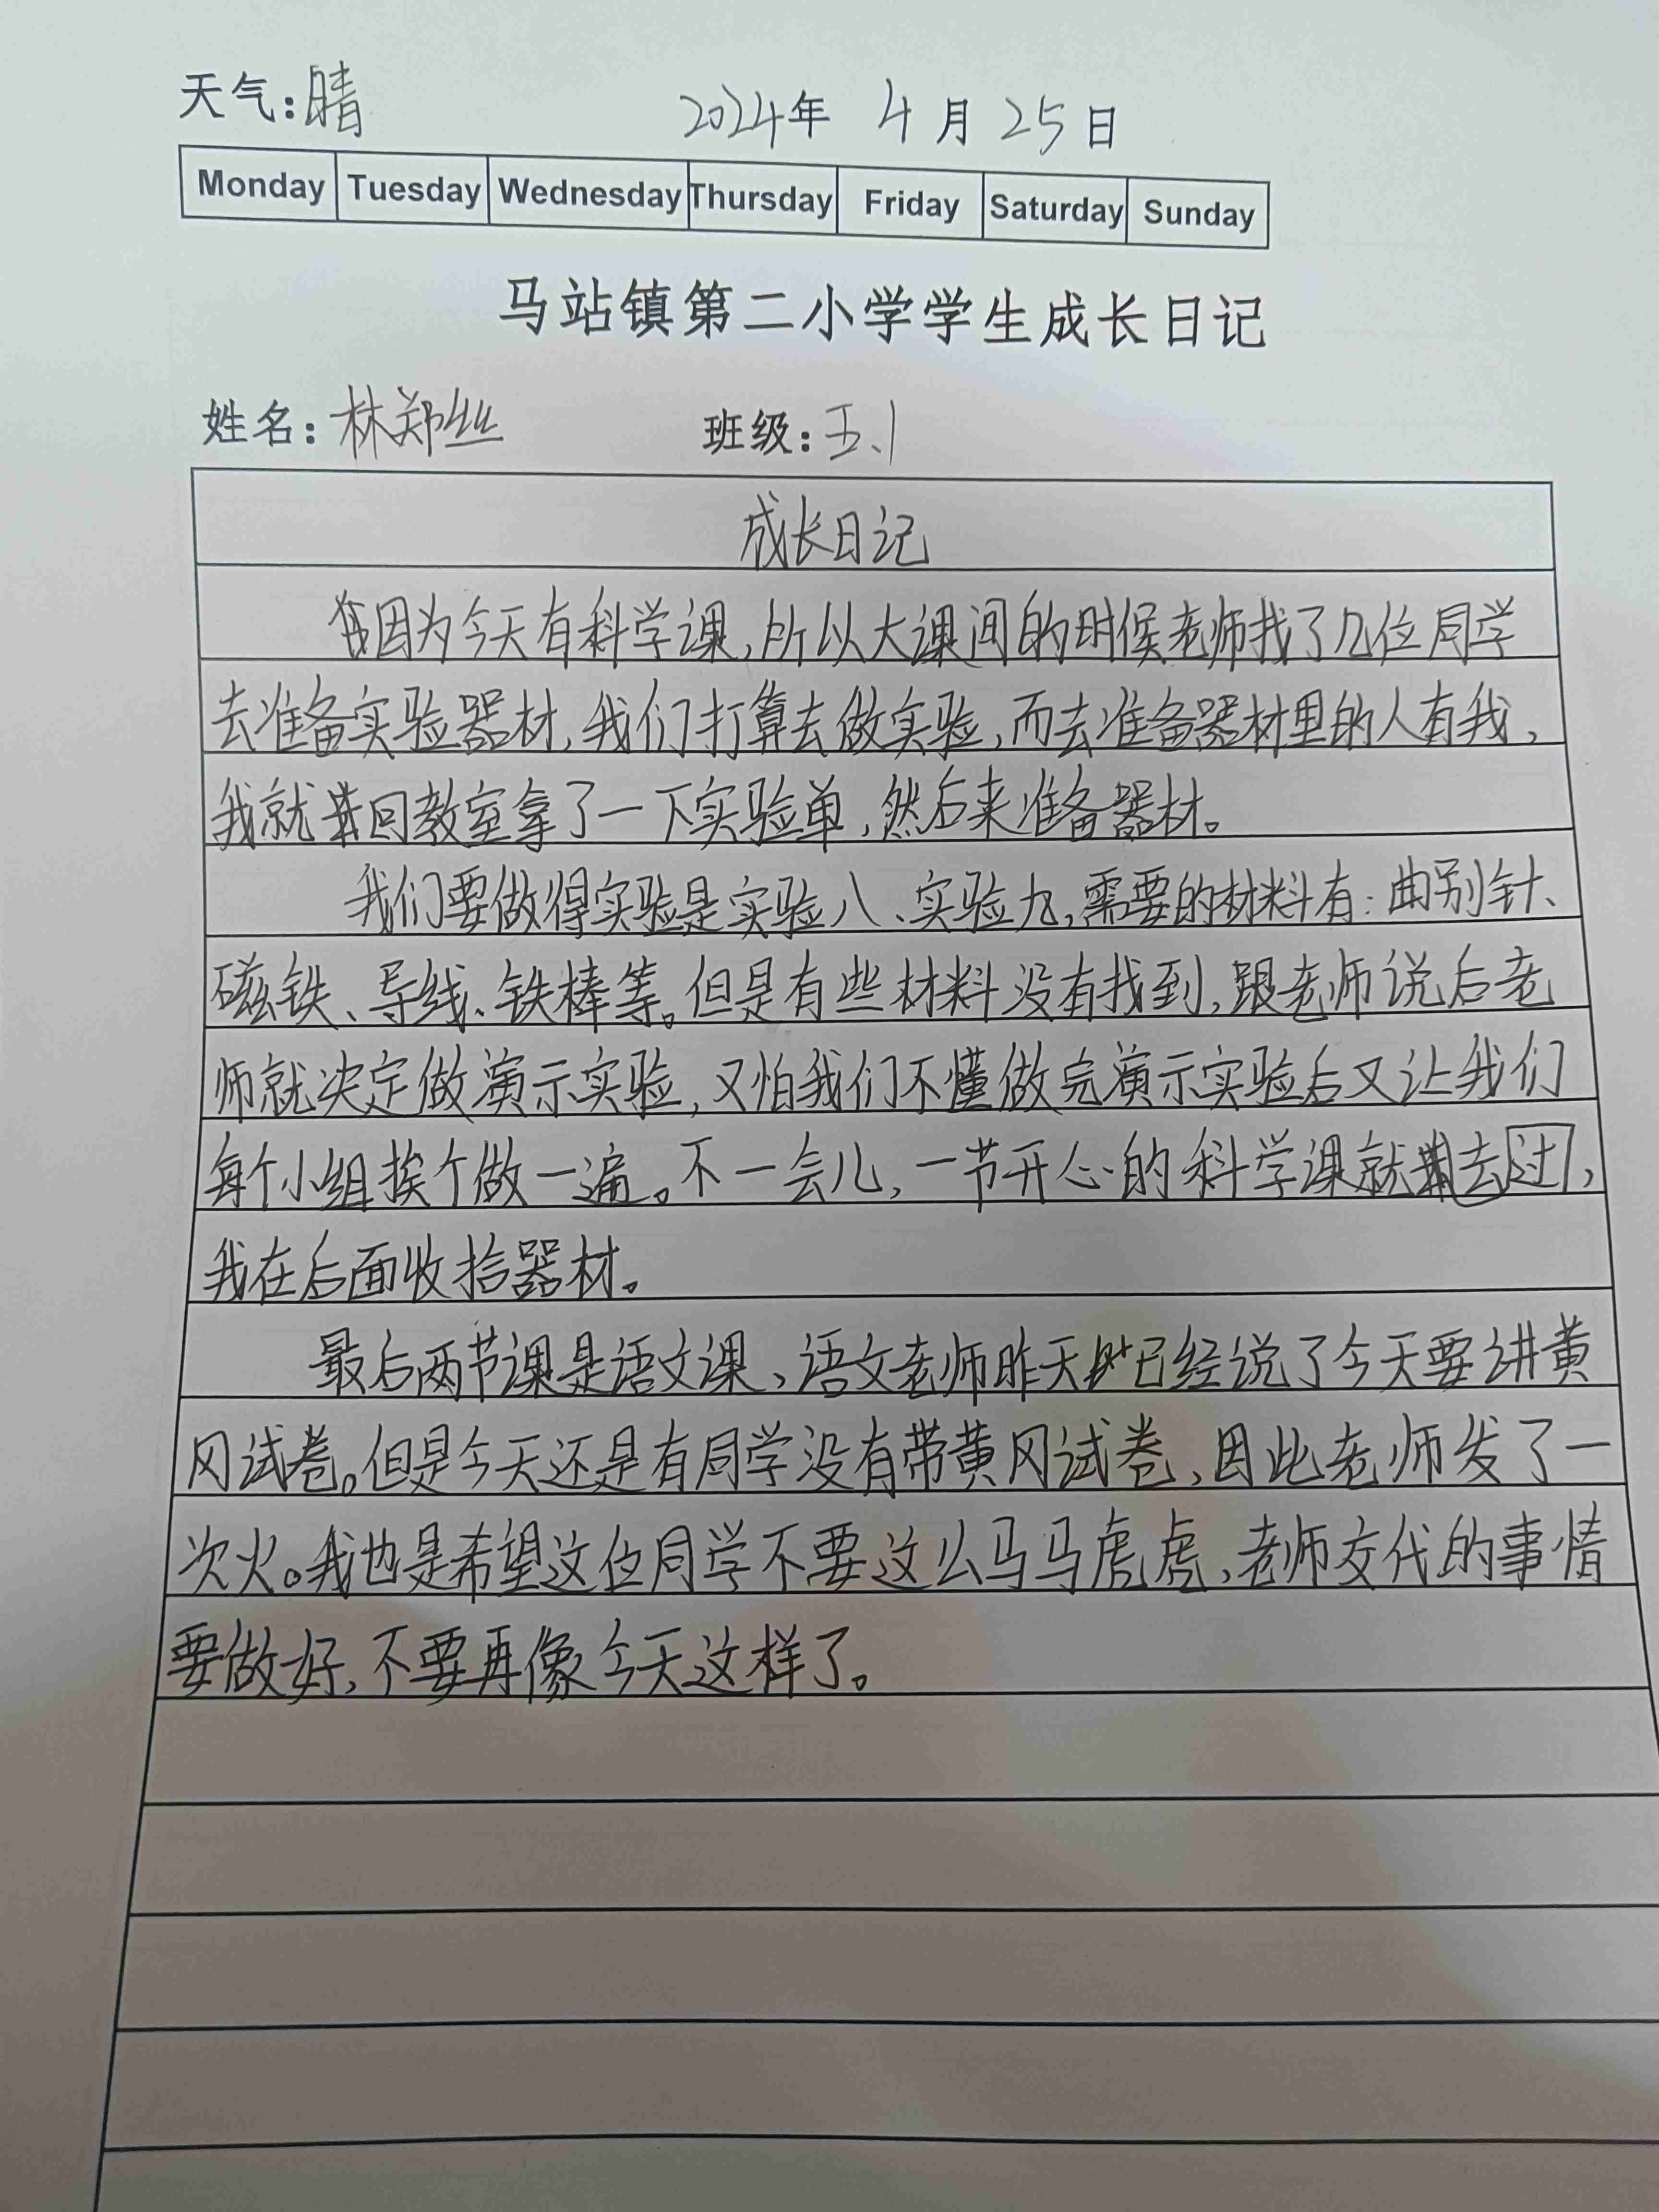 天气:晴 2024年 4月25日
Monday Tuesday Wednesday Thursday Friday Saturday Sunday
马站镇第二小学学生成长日记
姓名:林郑丝 班级:五、1
成长日记
因为今天有科学课,所以大课间的时候老师找了几位同学
去准备实验器材,我们打算去做实验,而去准备器材里的人有我,
我就回教室拿了一下实验单,然后来准备器材。
我们要做得实验是实验八、实验九,需要的材料有:曲别针、
磁铁、导线、铁棒等。但是有些材料没有找到,跟老师说后老
师就决定做演示实验,又怕我们不懂做完演示实验后又让我们
每个小组挨个做一遍。不一会儿,一节开心的科学课就去过,
我在后面收拾器材。
最后两节课是语文课、语文老师昨天已经说了今天要讲黄
冈试卷。但是今天还是有同学没有带黄冈试卷,因此老师发了一
次火。我也是希望这位同学不要这么马马虎虎,老师交代的事情
要做好,不要再像今天这样了。